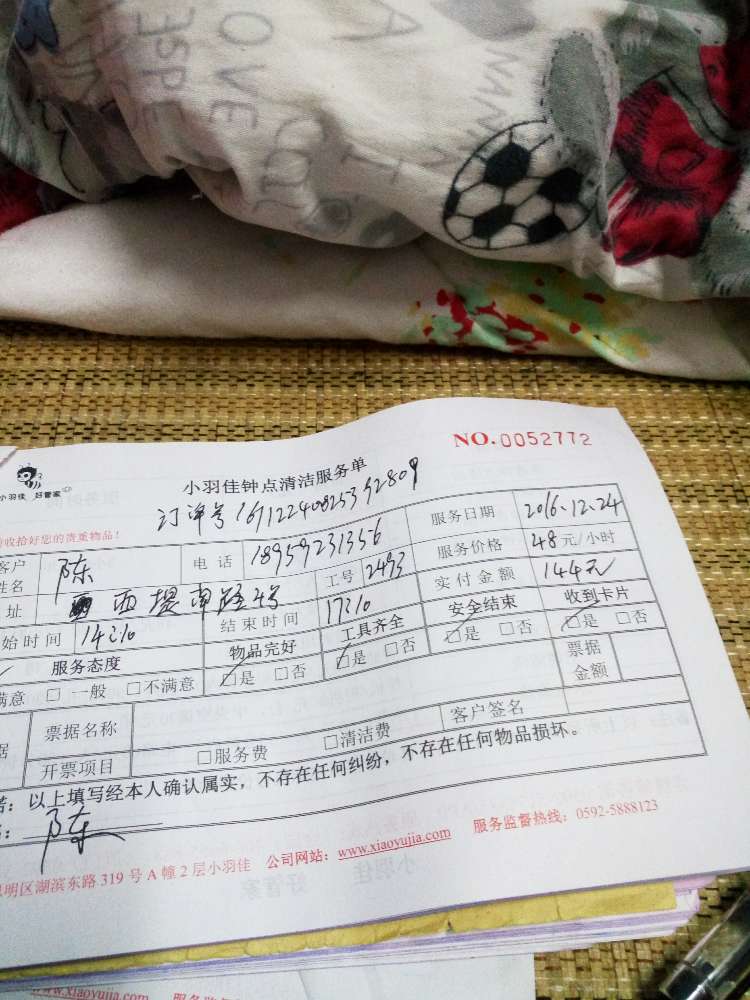 LOVE
ESPE
COOL
NANA
I
NO.0052772
小羽佳 好管家
小羽佳钟点清洁服务单
订单号
收拾好您的贵重物品!
客户姓名 陈 电话 18959231356 服务日期 2016.12.24
址 西堤南路4号 工号 2493 服务价格 48元/小时
始时间 14:10 结束时间 17:10 实付金额 144元
服务态度 物品完好 工具齐全 安全结束 收到卡片
满意 □ 一般 □不满意 □是 □否 □是 □否 □是 □否 □是 □否
据 票据名称 票据金额
开票项目 □服务费 □清洁费 客户签名
诺:以上填写经本人确认属实,不存在任何纠纷,不存在任何物品损坏。
: 陈
明区湖滨东路319号A幢2层小羽佳 公司网站:www.xiaoyujia.com 服务监督热线:0592-5888123
www.xiaoyujia.com